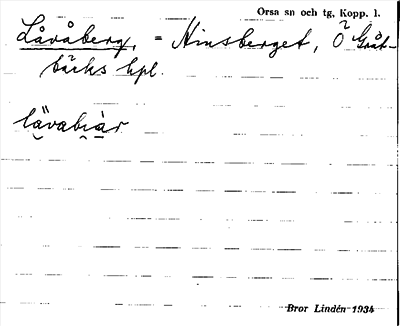 Orsa sn och tg, Kopp. l.
Låvåberg, = Hinsberget, Ö Gråt-
bäcks hpl.
lävabiär
Bror Lindén 1934